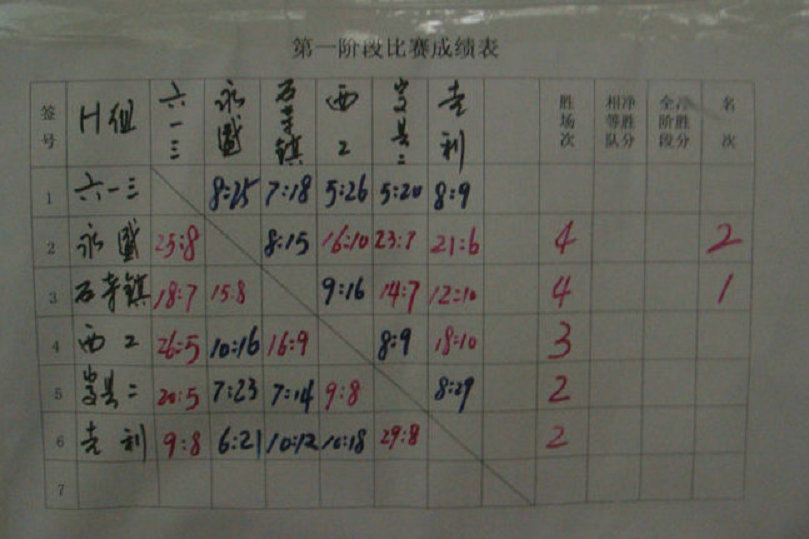 第一阶段比赛成绩表
签号 H组 六一三 永盛 石寺镇 西工 嵩县二 吉利 胜场次 相等队净胜分 全阶段净胜分 名次
1 六一三 8:25 7:18 5:26 5:20 8:9
2 永盛 25:8 8:15 16:10 23:7 21:6 4 2
3 石寺镇 18:7 15:8 9:16 14:7 12:10 4 1
4 西工 26:5 10:16 16:9 8:9 18:10 3
5 嵩县二 20:5 7:23 7:14 9:8 8:29 2
6 吉利 9:8 6:21 10:12 10:18 29:8 2
7